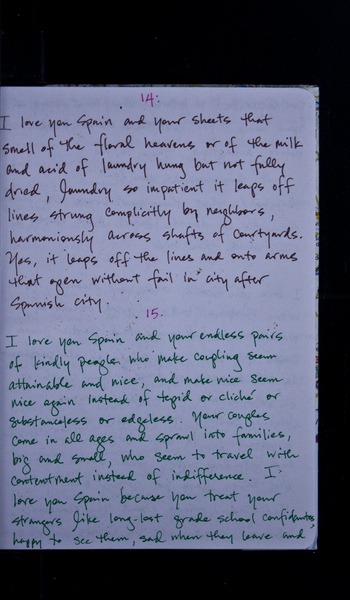 14:
I love you Spain and your sheets that
smell of the floral heavens or of the milk
and acid of laundry hung but not fully
dried, laundry so impatient it leaps off
lines strung complicitly by neighbors,
harmoniously across shafts of courtyards.
Yes, it leaps off the lines and onto arms
that open without fail in city after
Spanish city.
15.
I love you Spain and your endless pairs
of kindly people who make coupling seem
attainable and nice, and make nice seem
nice again instead of tepid or cliché or
substanceless or edgeless. Your couples
come in all ages and sprawl into families,
big and small, who seem to travel with
contentment instead of indifference. I
love you Spain because you treat your
strangers like long-lost grade school confidantes,
happy to see them, sad when they leave and